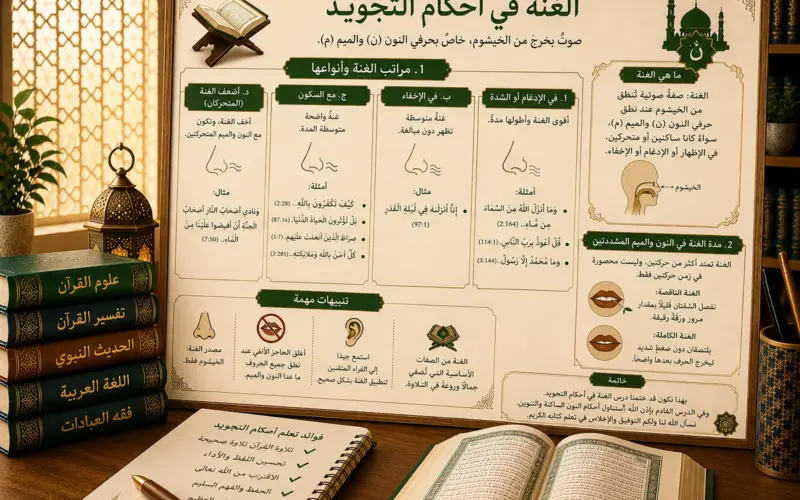 الغنة في أحكام التجويد
صوتٌ يخرج من الخيشوم، خاصٌ بحرفي النون (ن) والميم (م).
ن
1. مراتب الغنة وأنواعها
1. في الإدغام أو الشدة
أقوى الغنة وأطولها مدةً.
أمثلة:
• وَمَا أَنْزَلَ اللَّهُ مِنَ السَّمَاءَ
مِن مَّـاءٍ.. (2:164)
• قُلْ أَعُوذُ بِرَبِّ النَّاسِ. (114:1)
• وَمَا مُحَمَّدٌ إِلَّا رَسُولٌ. (3:144)
ب. في الإخفاء
غنةٌ متوسطة
تظهر دون مبالغة.
مثال:
• إِنَّا أَنْزَلْنَهُ فِي لَيْلَةِ الْقَدْرِ
(97:1)
ج. مع السكون
غنةٌ واضحة
متوسطة المدة.
أمثلة:
• كَيْفَ تَكْفُرُونَ بِاللَّهِ... (2:28)
• بَلْ تُؤْثِرُونَ الْحَيَاةَ الدُّنْيَا. (87:16)
• صِرَاطَ الَّذِينَ أَنْعَمْتَ عَلَيْهِمْ. (1:7)
• كُلٌّ آمَنَ بِاللَّهِ وَمَلَائِكَتِهِ.. (2:285)
د. أضعف الغنة
(المتحركان)
أخف الغنة، وتكون
مع النون والميم المتحركتين.
مثال:
وَنَادَى أَصْحَابُ النَّارِ أَصْحَابَ
الْجَنَّةِ أَنْ أَفِيضُوا عَلَيْنَا مِنَ
الْمَاءِ.. (7:50)
ما هي الغنة
الغنة: صفةٌ صوتية تُنطق
من الخيشوم عند نطق
حرفي النون (ن) والميم (م)،
سواءً كانا ساكنين أو متحركين،
في الإظهار أو الإدغام أو الإخفاء.
الخيشوم
2. مدة الغنة في النون والميم المشددتين
الغنة تمتد أكثر من حركتين، وليست محصورة
في زمن حركتين فقط.
الغنة الناقصة:
تفصل الشفتان قليلاً بمقدار
مرور ورقةٍ رقيقة.
الغنة الكاملة:
يلتصقان دون ضغطٍ شديد
ليخرج الحرف بعدها واضحًا.
تنبيهات مهمة
الغنة من الصفات
الأساسية التي تُضفي
جمالاً وروعةً في التلاوة.
استمع جيدًا
إلى القراء المتقنين
لتطبيق الغنة بشكل صحيح.
أغلق الحاجز الأنفي عند
نطق جميع الحروف
ما عدا النون والميم.
مصدر الغنة:
الخيشوم فقط.
خاتمة
بهذا نكون قد ختمنا درس الغنة في أحكام التجويد.
وفي الدرس القادم بإذن الله أستناول أحكام النون الساكنة والتنوين.
نسأل الله لنا ولكم التوفيق والإخلاص في تعلم كتابه الكريم.
علوم القرآن
تفسير القرآن
الحديث النبوي
اللغة العربية
فقه العبادات
فوائد تعلم أحكام التجويد
✓ تلاوة القرآن تلاوة صحيحة
✓ تحسين اللفظ والأداء
✓ الاقتراب من الله تعالى
✓ الحفظ والفهم السليم